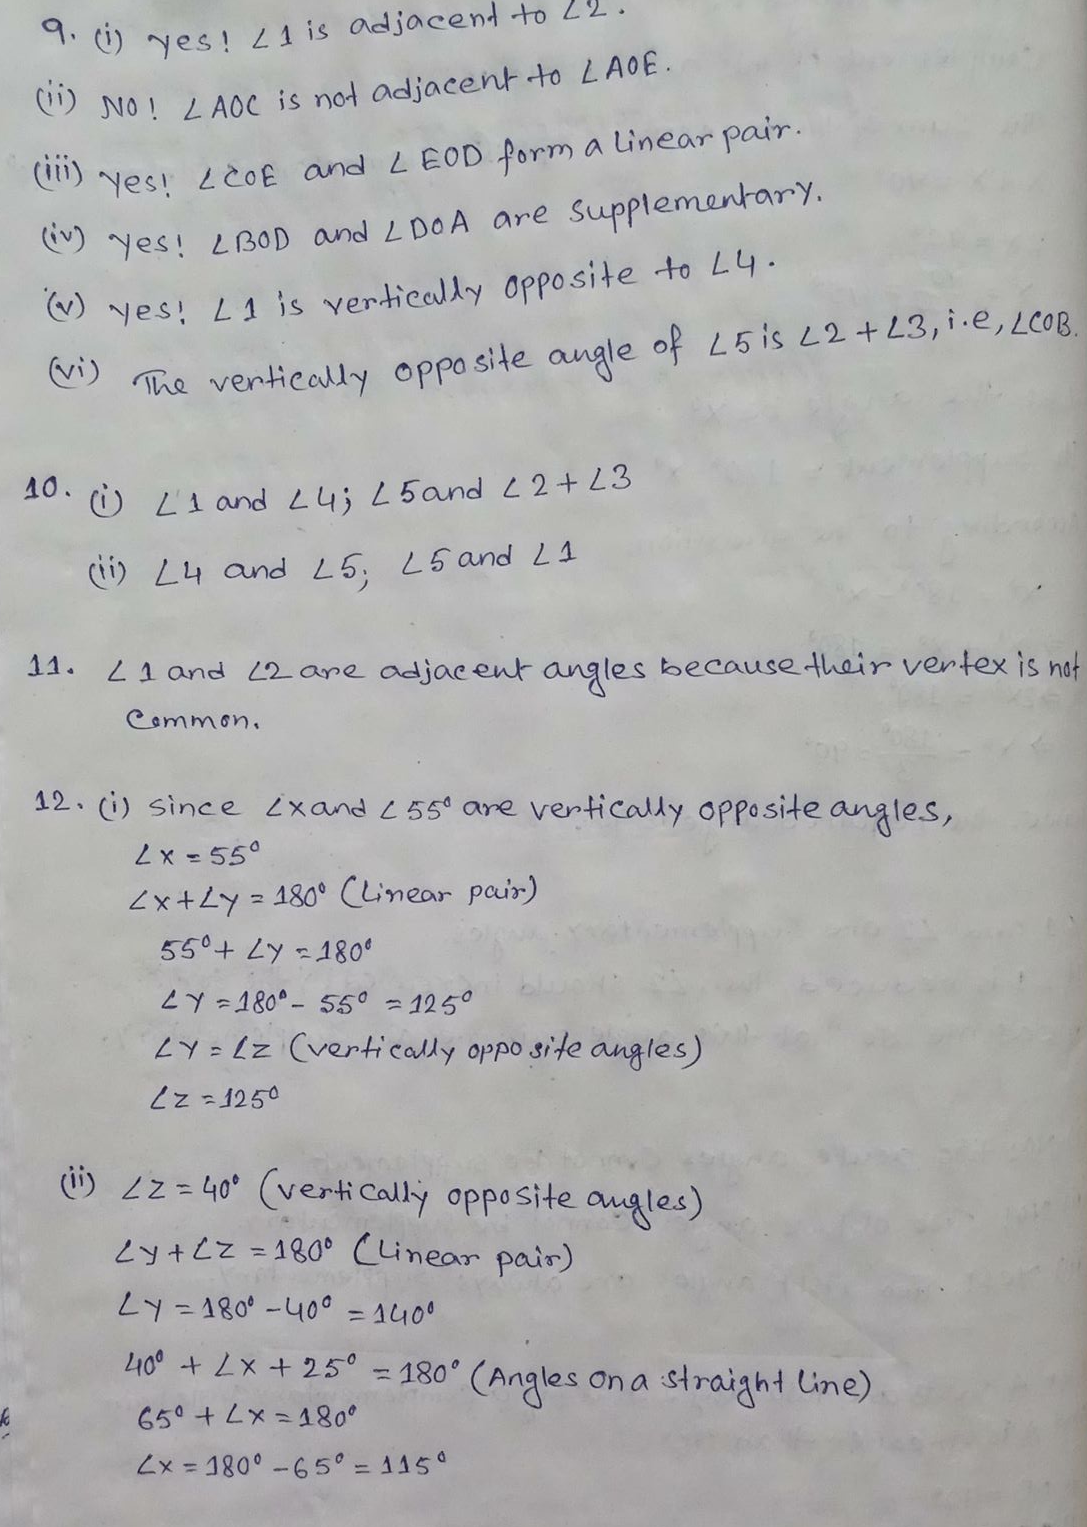 9. (i) yes! ∠1 is adjacent to ∠2.
(ii) NO! ∠AOC is not adjacent to ∠AOE.
(iii) yes! ∠COE and ∠EOD form a linear pair.
(iv) yes! ∠BOD and ∠DOA are supplementary.
(v) yes! ∠1 is vertically opposite to ∠4.
(vi) The vertically opposite angle of ∠5 is ∠2 + ∠3, i.e, ∠COB.
10. (i) ∠1 and ∠4; ∠5 and ∠2 + ∠3
(ii) ∠4 and ∠5; ∠5 and ∠1
11. ∠1 and ∠2 are adjacent angles because their vertex is not
common.
12. (i) since ∠x and ∠55° are vertically opposite angles,
∠x = 55°
∠x + ∠y = 180° (Linear pair)
55° + ∠y = 180°
∠y = 180° - 55° = 125°
∠y = ∠z (vertically opposite angles)
∠z = 125°
(ii) ∠z = 40° (vertically opposite angles)
∠y + ∠z = 180° (Linear pair)
∠y = 180° - 40° = 140°
40° + ∠x + 25° = 180° (Angles on a straight line)
65° + ∠x = 180°
∠x = 180° - 65° = 115°